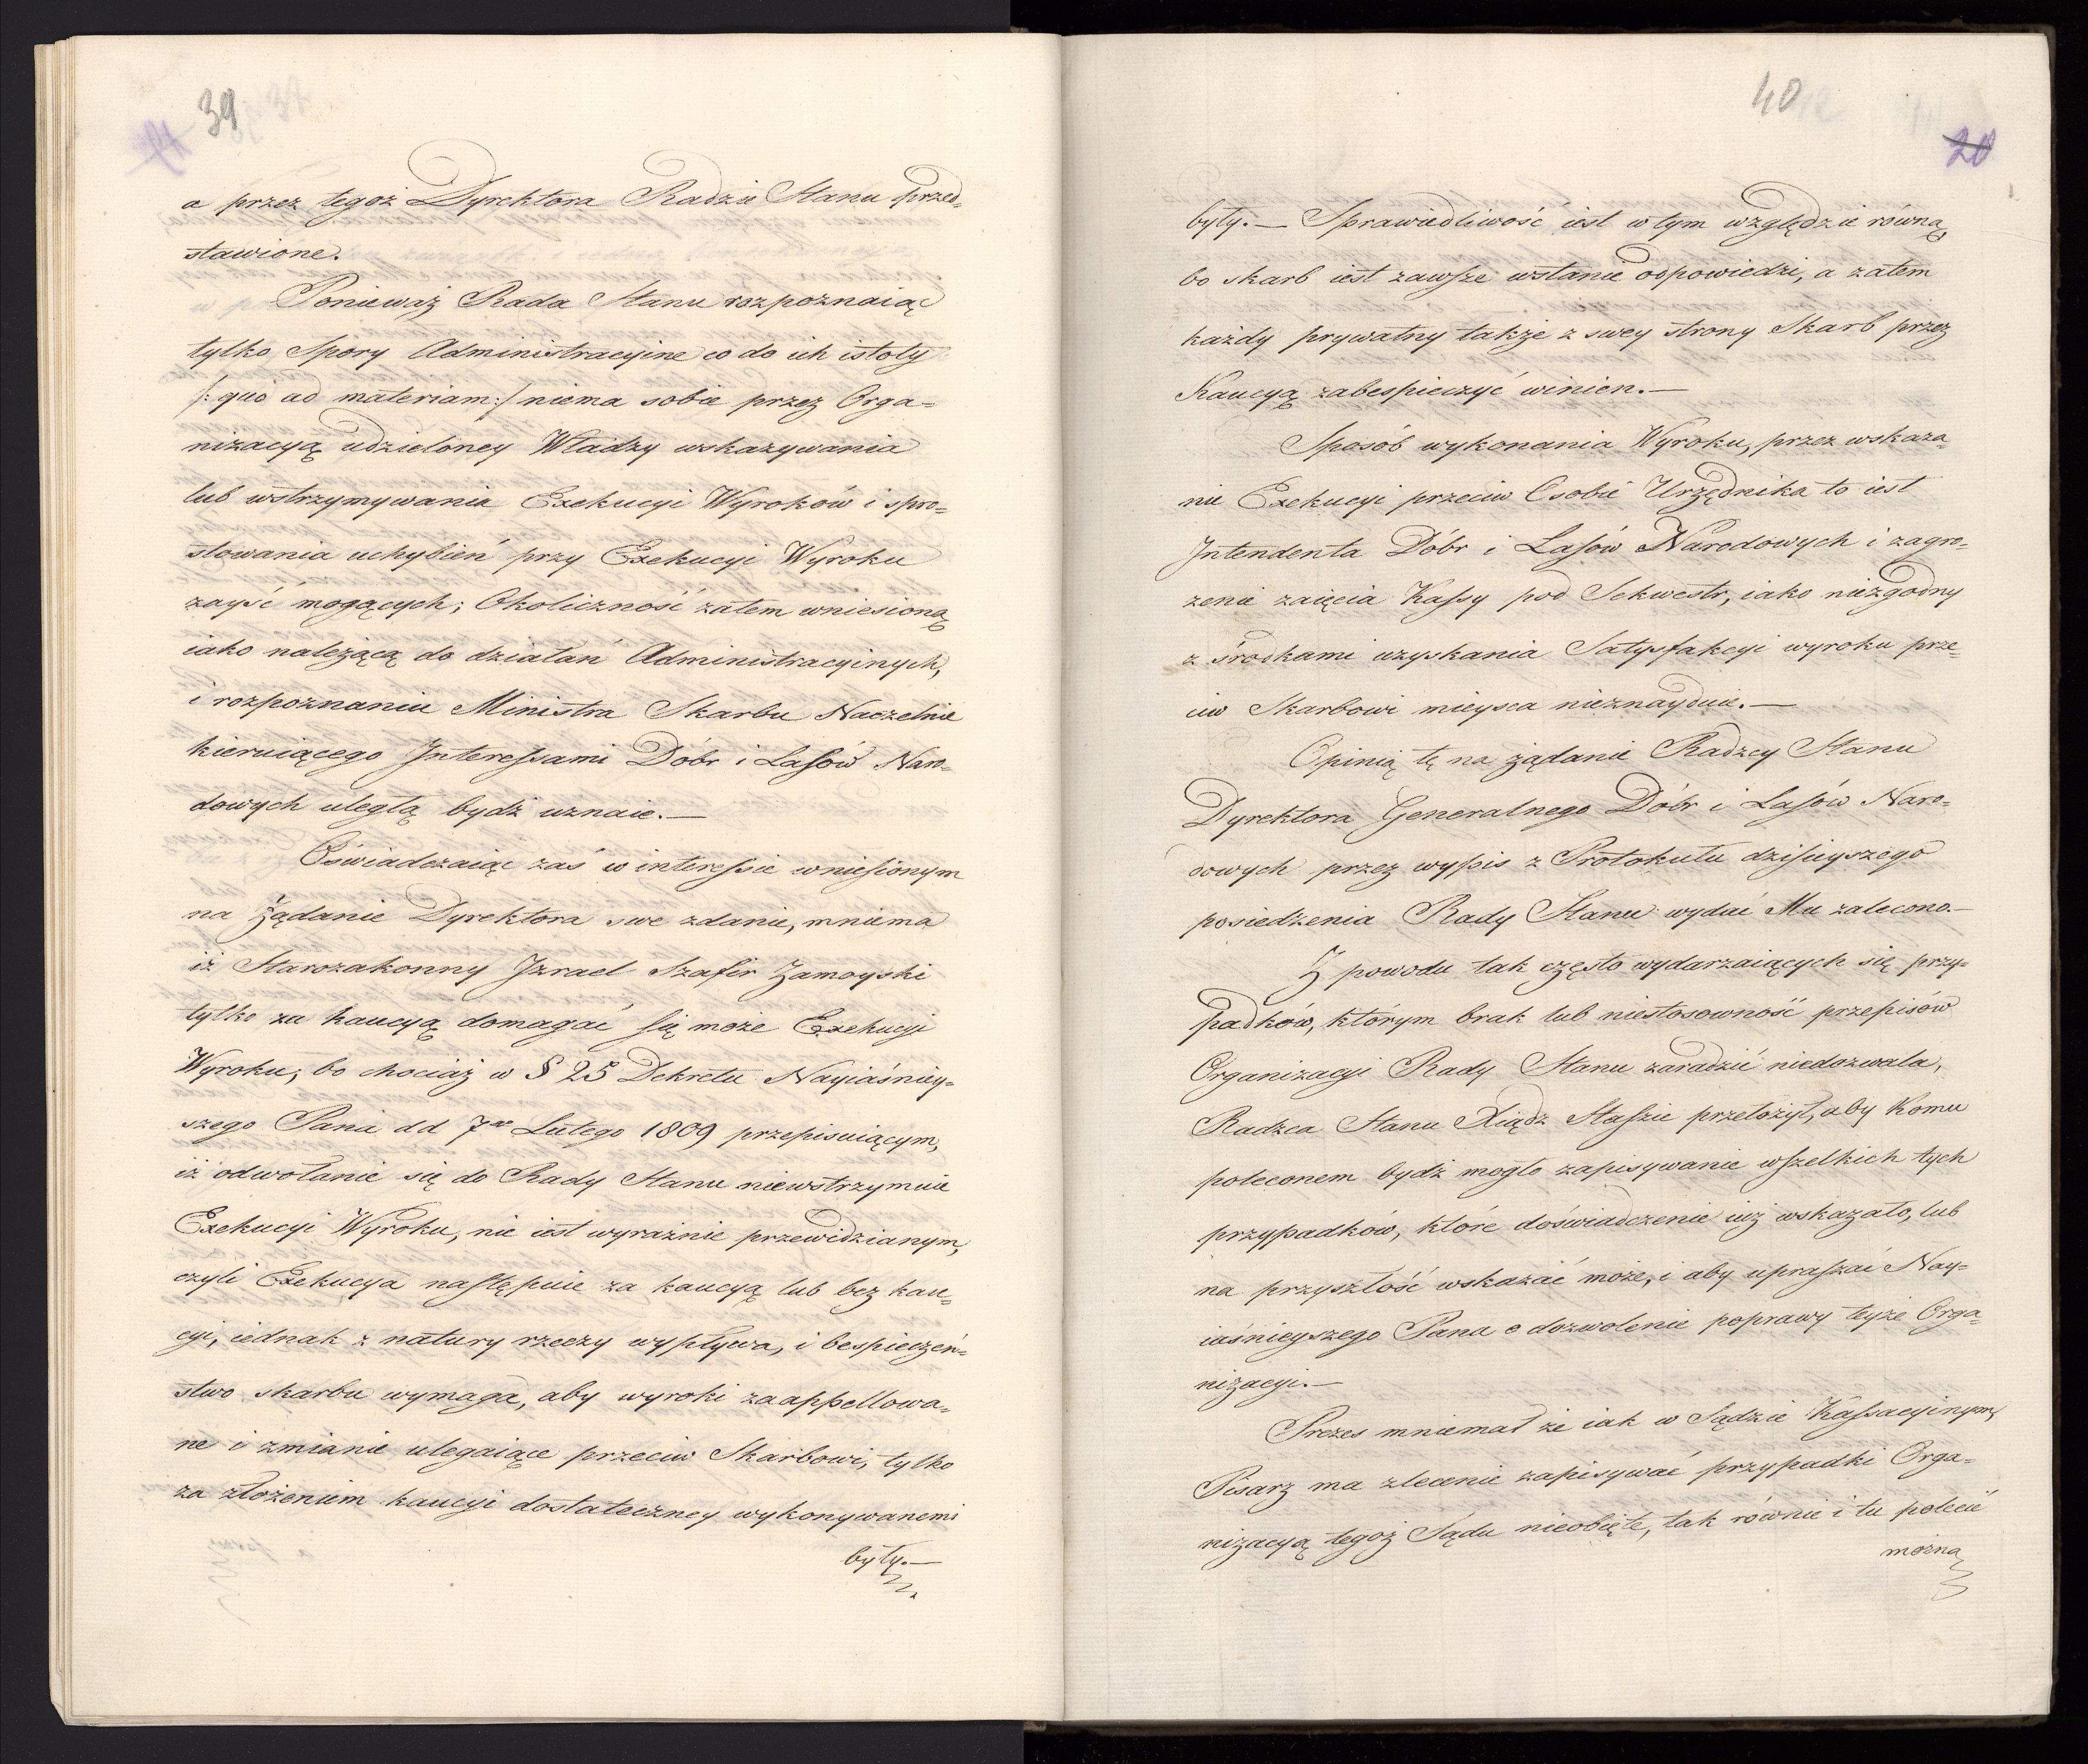 39
a przez tegoż Dyrektora Radzie Stanu przed=
stawione.
Ponieważ Rada Stanu rozpoznaiąc
tylko Spory Administracyine co do ich istoty
/: quo ad materiam :/ niema sobie przez Orga=
nizacyą udzieloney Władzy wskazywania
lub wstrzymywania Exekucyi Wyroków i spro=
stowania uchybień przy Exekucyi Wyroku
zayść mogących; Okoliczność zatem wniesioną
iako należącą do działań Administracyinych,
i rozpoznaniu Ministra Skarbu Naczelnie
kieruiącego Interessami Dóbr i Lasów Naro=
dowych uległą bydź uznaie.—
Oświadczaiąc zaś w interessie wniesionym
na Żądanie Dyrektora swe zdanie, mniema
iż Starozakonny Izrael Szafir Zamoyski
tylko za kaucyą domagać się może Exekucyi
Wyroku; bo chociaż w § 25 Dekretu Nayiaśniey=
szego Pana dd 7go Lutego 1809 przepisuiącym,
iż odwołanie się do Rady Stanu niewstrzymuie
Exekucyi Wyroku, nie iest wyraźnie przewidzianym,
czyli Exekucya nastę puie za kaucyą lub bez kau=
cyi, iednak z natury rzeczy wypływa, i bespieczeń=
stwo skarbu wymaga, aby wyroki zaappellowa=
ne i zmianie ulegaiące przeciw Skarbowi, tylko
za złożeniem kaucyi dostateczney wykonywanemi
były.—
40
20
były.— Sprawiedliwość iest w tym względzie równą,
bo skarb iest zawsze wstanie odpowiedzi, a zatem
każdy prywatny także z swey strony Skarb przez
Kaucyą zabespieczyć winien.—
Sposób wykonania Wyroku, przez wskaza=
nie Exekucyi przeciw Osobie Urzędnika to iest
Intendenta Dóbr i Lasów Narodowych i zagro=
żenie zaięcia Kassy pod Sekwestr, iako niezgodny
z środkami uzyskania Satysfakcyi wyroku prze=
ciw Skarbowi mieysca nieznayduie.—
Opinią tę na żądanie Radzcy Stanu
Dyrektora Generalnego Dóbr i Lasów Naro=
dowych przez wypis z Protokułu dzisieyszego
posiedzenia Rady Stanu wydać Mu zalecono.—
Z powodu tak często wydarzaiących się przy=
padków, którym brak lub niestosowność przepisów
Organizacyi Rady Stanu zaradzić niedozwala,
Radzca Stanu Xiądz Staszic przełożył, aby komu
poleconem bydź mogło zapisywanie wszelkich tych
przypadków, które doświadczenie iuż wskazało, lub
na przyszłość wskazać może, i aby upraszać Nay=
iaśnieyszego Pana o dozwolenie poprawy teyże Orga=
nizacyi.—
Prezes mniemał że iak w Sądzie Kassacyinym
Pisarz ma zlecenie zapisywać przypadki Orga=
nizacyą tegoż Sądu nieobięte, tak równie i tu polecić
można